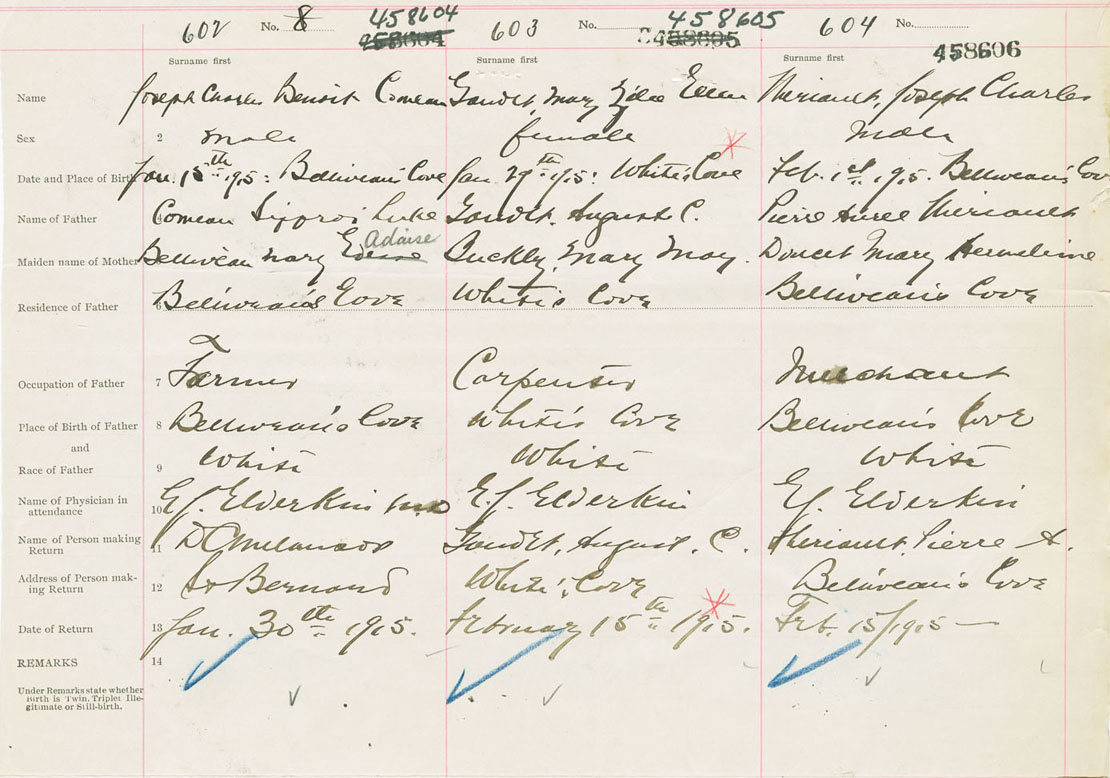 602 No. 8 458604 603 No. 458605 604 No.
458604 458605 458606
Surname first Surname first Surname first
Name Joseph Charles Benoit Comeau Gaudet, Mary Ellen Theriault, Joseph Charles
Sex 2 male female Male
Date and Place of Birth Jan. 15th 1915: Belliveau's Cove Jan. 29th 1915: White's Cove Feb. 1st 1915. Belliveau's Cove
Name of Father Comeau Luke Gaudet, August. C. Pierre Theriault
Adaise
Maiden name of Mother Belliveau Mary Buckly, Mary May. Doucet Mary
Residence of Father 6 Belliveau's Cove White's Cove Belliveau's Cove
Occupation of Father 7 Farmer Carpenter Merchant
Place of Birth of Father 8 Belliveau's Cove White's Cove Belliveau's Cove
and
Race of Father 9 White White White
Name of Physician in attendance 10 E.J. Elderkin M.D E.J. Elderkin E.J. Elderkin
Name of Person making Return 11 Gaudet, August. C. Theriault, Pierre A.
Address of Person making Return 12 St Bernard White's Cove Belliveau's Cove
Date of Return 13 Jan. 30th 1915. February 15th 1915. Feb. 15/1915
REMARKS 14
Under Remarks state whether
Birth is Twin, Triplet Ille-
gitimate or Still-birth.